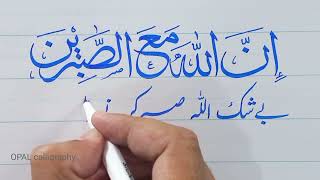 إِنَّ اللهَ مَعَ الصّٰبِرِيْنَ
بے شک اللہ صبر کر
OPAL calligraphy